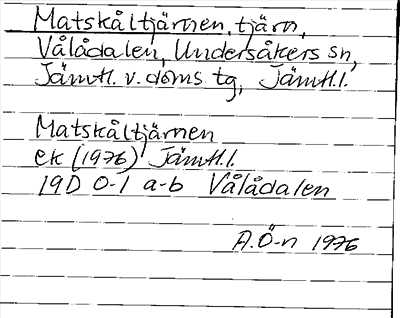 Matskåltjärnen, tjärn,
Vålådalen, Undersåkers sn,
Jämtl. v. doms. tg, Jämtl.l.
Matskåltjärnen
ek (1976) Jämtl.l.
19D 0-1 a-b Vålådalen
A.Ö-n 1976